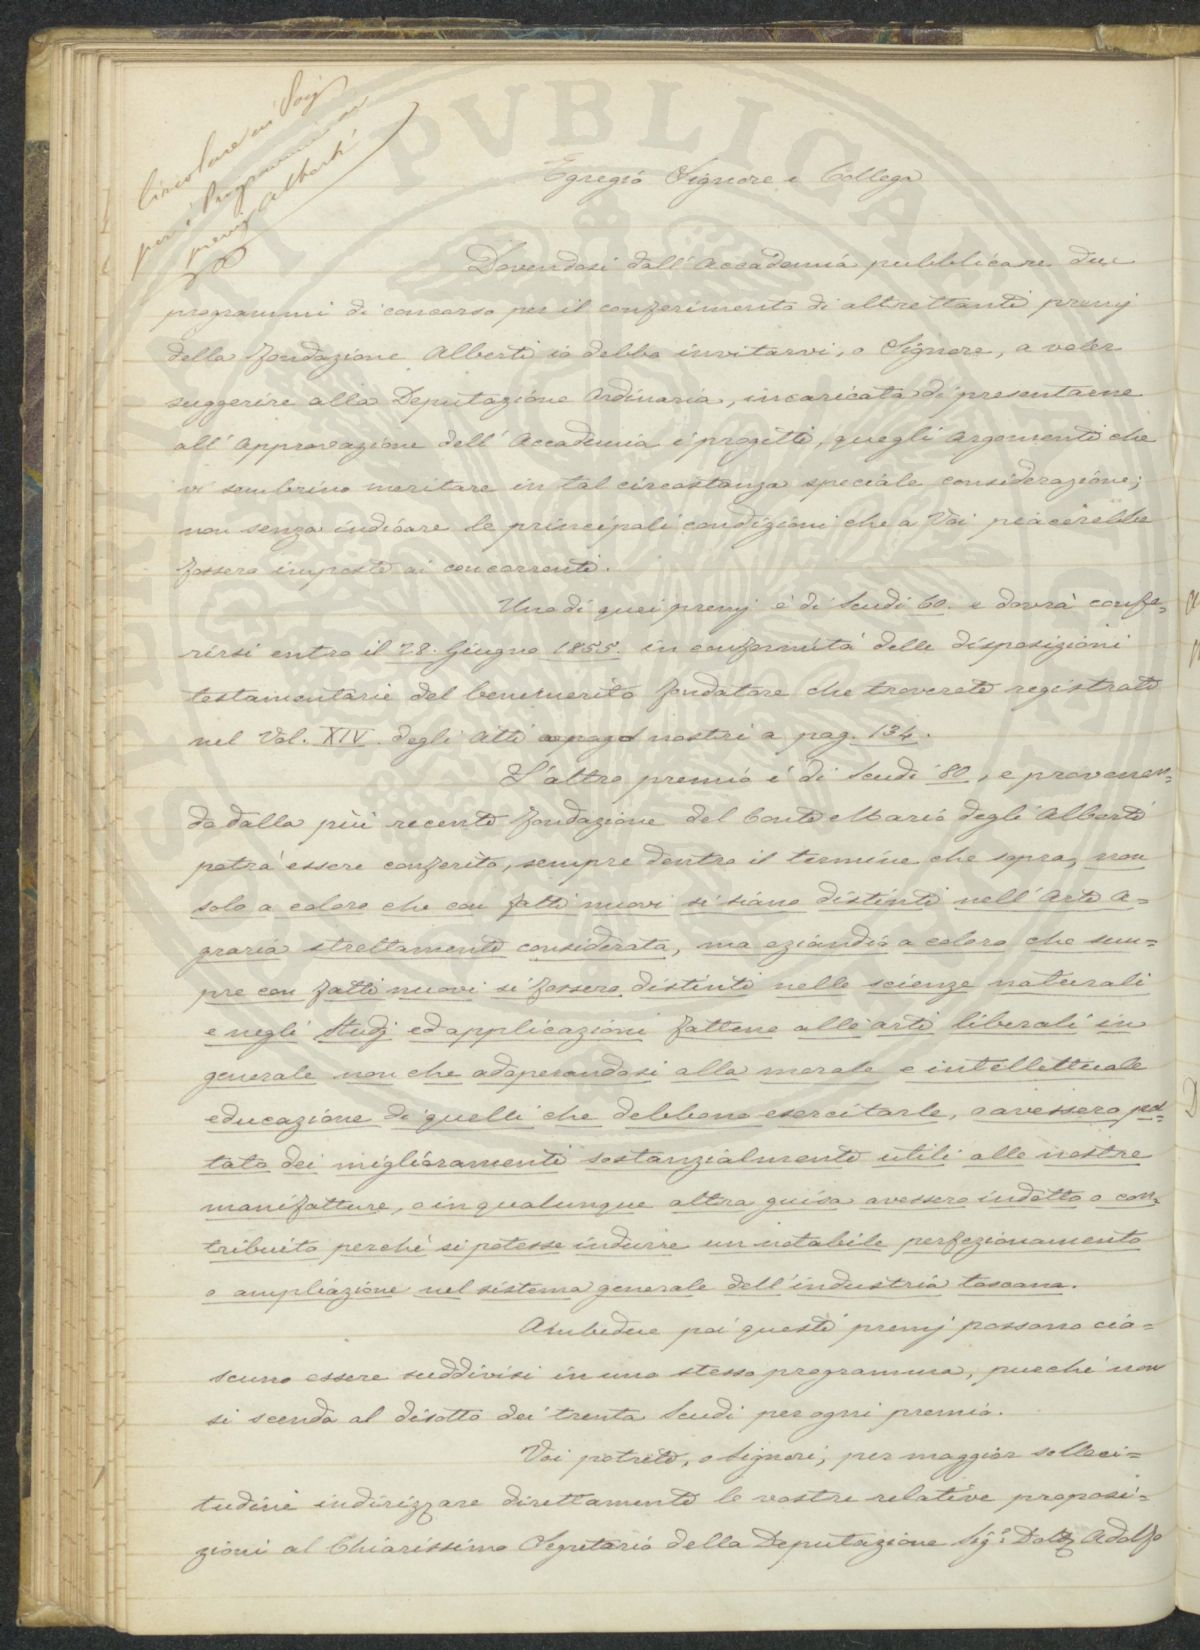 Circolare ai Soci
per i Programmi dei
premj Alberti
Egregio Signore e Collega
Dovendosi dall'Accademia pubblicare due
programmi di concorso per il conferimento di altrettanti premj
della fondazione Alberti io debbo invitarvi, o Signore, a voler
suggerire alla Deputazione Ordinaria, incaricata di presentarne
all'Approvazione dell'Accademia i progetti, quegli Argomenti che
vi sembrino meritare in tal circostanza speciale considerazione;
non senza indicare le principali condizioni che a Voi piacerebbe
fossero imposte ai concorrenti.
Uno di quei premj è di Scudi 60. e dovrà confe=
rirsi entro il 28. Giugno 1855. in conformità delle disposizioni
testamentarie del benemerito fondatore che troverete registrate
nel Vol. XIV. degli Atti nostri a pag. 134.
L'altro premio è di Scudi 80, e provenen=
do dalla più recente fondazione del Conte Mario degli Alberti
potrà essere conferito, sempre dentro il termine che sopra, non
solo a coloro che con fatti nuovi si siano distinti nell'Arte a=
graria strettamente considerata, ma eziandio a coloro che sem=
pre con fatti nuovi si fossero distinti nelle scienze naturali
e negli studj ed applicazioni fattene alle arti liberali in
generale non che adoperandosi alla morale e intellettuale
educazione di quelli che debbono esercitarle, o avessero por=
tato dei miglioramenti sostanzialmente utili alle nostre
manifatture, o in qualunque altra guisa avessero indotto o con=
tribuito perché si potesse indurre un notabile perfezionamento
o ampliazione nel sistema generale dell'industria toscana.
Ambedue poi questi premj possono cia=
scuno essere suddivisi in uno stesso programma, purché non
si scenda al disotto dei trenta Scudi per ogni premio.
Voi potrete, o Signori, per maggior solleci=
tudine indirizzare direttamente le vostre relative proposi=
zioni al Chiarissimo Segretario della Deputazione Sig.º Dott. Adolfo